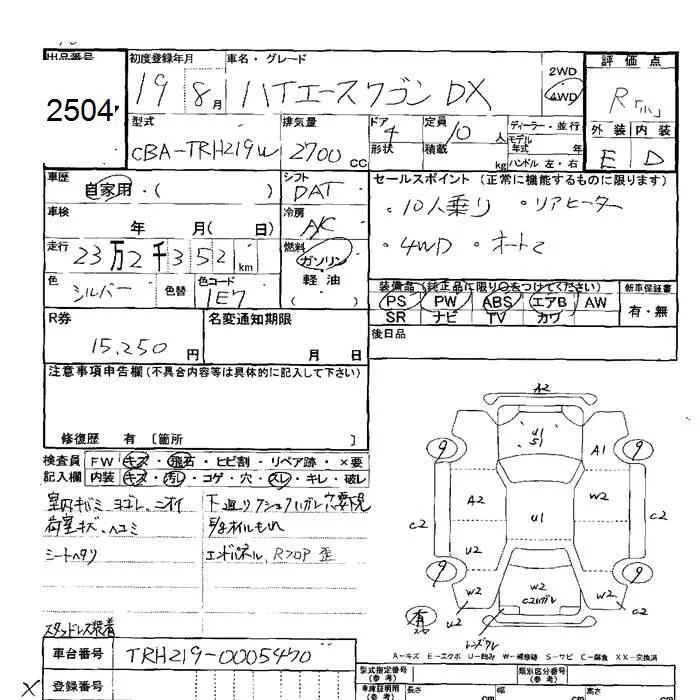 出品番号
2504
初度登録年月
19 8月
車名・グレード
ハイエースワゴン DX
2WD
4WD
評価点
R
外装 内装
E D
型式
CBA-TRH219W
排気量
2700 cc
ドア 形状
4
定員 10 人
積載 kg
ディーラー・並行
モデル年式 年
ハンドル 左・右
車歴
自家用・( )
シフト
DAT
セールスポイント (正常に機能するものに限ります)
・10人乗り ・リアヒーター
・4WD ・オート
車検
年 月( 日)
冷房
A/C
走行
23万2千352km
燃料
ガソリン
軽油
( )
色
シルバー
色替
色コード
1E7
装備品 (純正品に限り○をつけてください)
PS PW ABS エアB AW
SR ナビ TV カワ
新車保証書
有・無
R券
15,250 円
名変通知期限
月 日
後日品
注意事項申告欄 (不具合内容等は具体的に記入して下さい)
修復歴 有 [箇所 ]
検査員記入欄
FW キズ・飛石・ヒビ割・リペア跡・×要
内装 キズ・汚レ・コゲ・穴・スレ・キレ・破レ
室内キバミ、ヨゴレ、ニオイ
荷室キズ、ヘコミ
シートヘタリ
下廻り
オイルもれ
エンドパネル、Rフロア 歪
スタッドレス装着
A2
U1
S1
9
A1
9
A2
W2
C2
C2
U1
U2
9
W2
W2
C2ハガレ
W2
9
U2
C2
有
レンズワレ
A-キズ E-エクボ U-凹み W-補修跡 S-サビ C-腐食 XX-交換済
車台番号
TRH219-0005470
登録番号
X
型式指定番号 (参考)
類別区分番号 (参考)
車庫証明用 (参考)
長さ cm
幅 cm
高さ cm